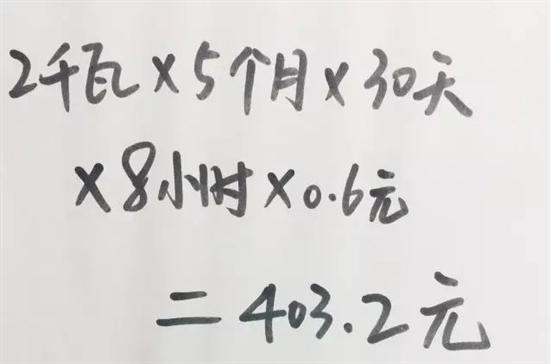 2千瓦×5个月×30天
×8小时×0.6元
=403.2元